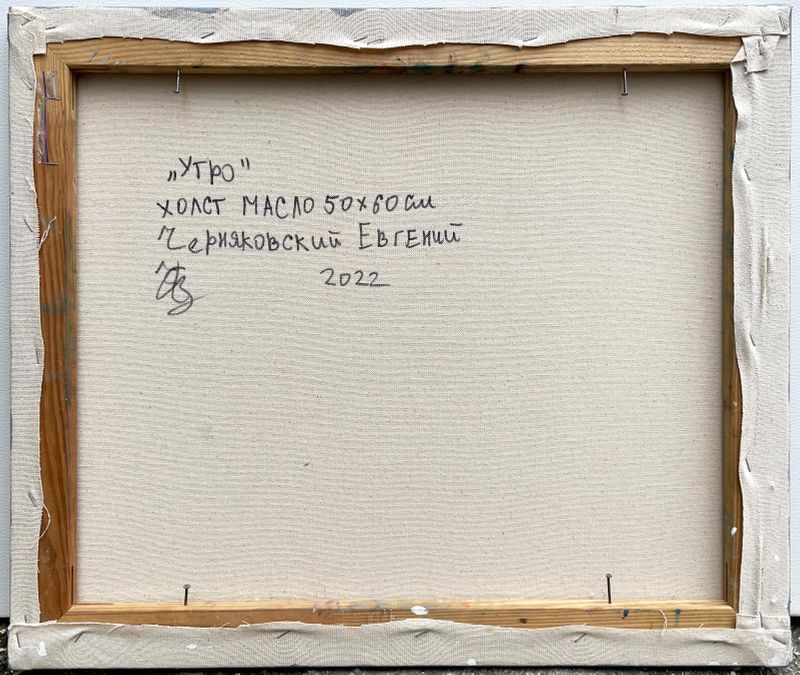 „Утро"
ХОЛСТ МАСЛО 50х60см
Черняковский Евгений
2022